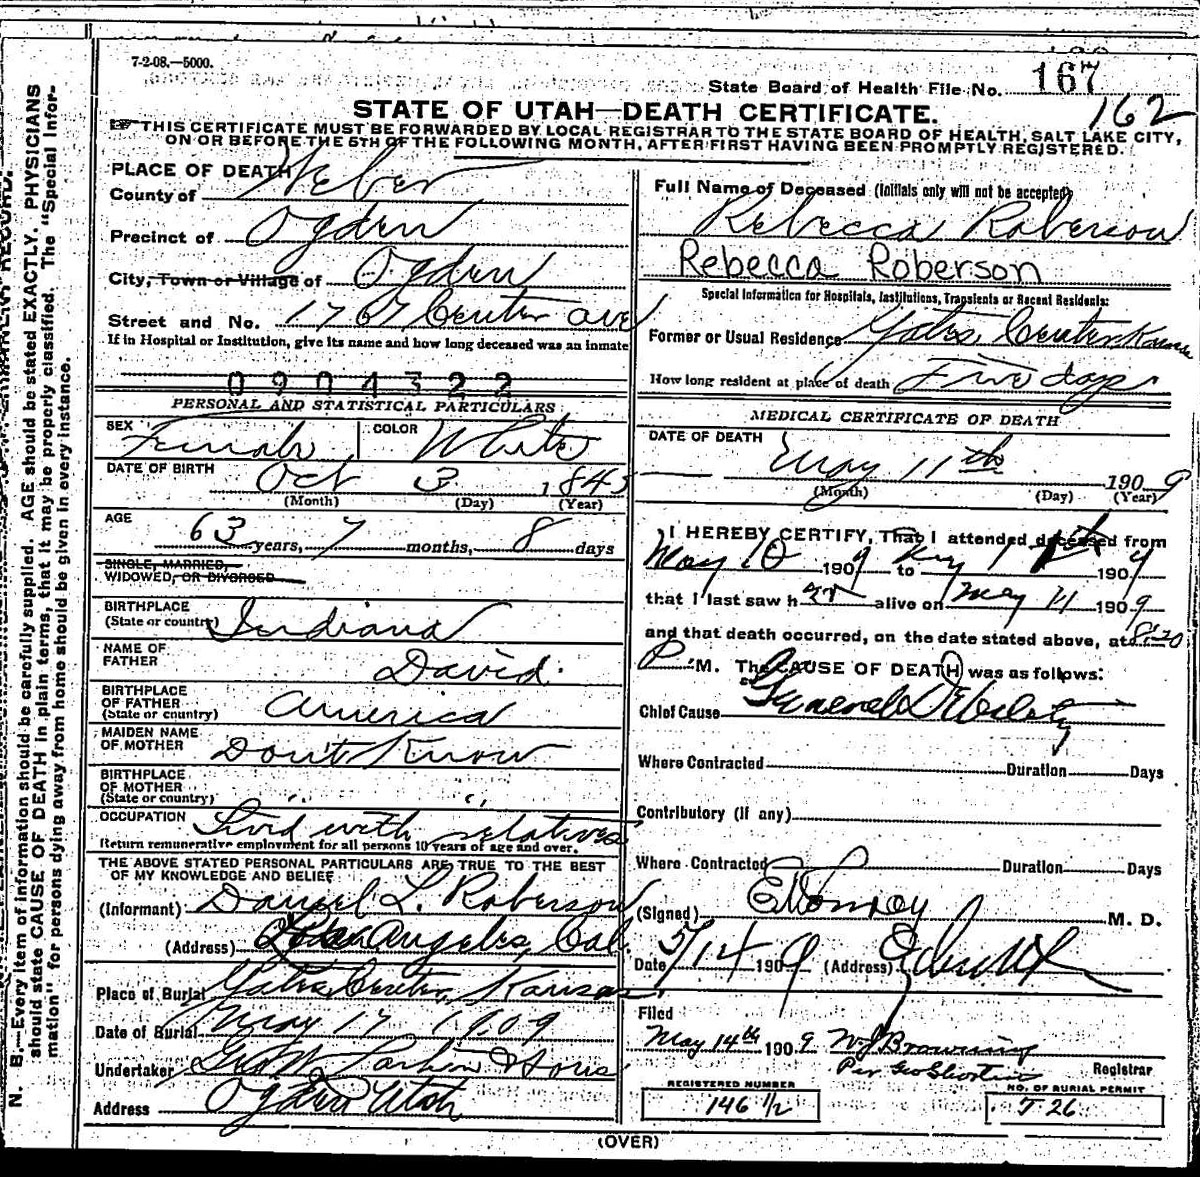 7-2-08.—5000.
State Board of Health File No. 167
162
STATE OF UTAH—DEATH CERTIFICATE.
☞ THIS CERTIFICATE MUST BE FORWARDED BY LOCAL REGISTRAR TO THE STATE BOARD OF HEALTH, SALT LAKE CITY,
ON OR BEFORE THE 5TH OF THE FOLLOWING MONTH, AFTER FIRST HAVING BEEN PROMPTLY REGISTERED.
PLACE OF DEATH
County of Weber
Precinct of Ogden
City, Town or Village of Ogden
Street and No. 1767 Center ave
If in Hospital or Institution, give its name and how long deceased was an inmate
0904322
PERSONAL AND STATISTICAL PARTICULARS
SEX Female COLOR White
DATE OF BIRTH
Oct 3 1845
(Month) (Day) (Year)
AGE
63 years, 7 months, 8 days
SINGLE, MARRIED,
WIDOWED, OR DIVORCED
BIRTHPLACE
(State or country) Indiana
NAME OF
FATHER David.
BIRTHPLACE
OF FATHER
(State or country) America
MAIDEN NAME
OF MOTHER Don't Know
BIRTHPLACE
OF MOTHER
(State or country) " "
OCCUPATION Lived with relatives
Return remunerative employment for all persons 10 years of age and over.
THE ABOVE STATED PERSONAL PARTICULARS ARE TRUE TO THE BEST
OF MY KNOWLEDGE AND BELIEF
(Informant) Daniel L. Roberson
(Address) Los Angeles, Cal.
Place of Burial Yates Center, Kansas.
Date of Burial May 17 1909
Undertaker Larkin & Sons
Address Ogden Utah
Full Name of Deceased (Initials only will not be accepted)
Rebecca Roberson
Rebecca Roberson
Special Information for Hospitals, Institutions, Transients or Recent Residents:
Former or Usual Residence Yates Center Kansas
How long resident at place of death Five days
MEDICAL CERTIFICATE OF DEATH
DATE OF DEATH
May 11th 1909
(Month) (Day) (Year)
I HEREBY CERTIFY, That I attended deceased from
May 10 1909 to May 11 1909
that I last saw her alive on May 11 1909
and that death occurred, on the date stated above, at 8:20
P. M. The CAUSE OF DEATH was as follows:
Chief Cause General Debility
Where Contracted Duration Days
Contributory (if any)
Where Contracted Duration Days
(Signed) M. D.
Date 5/14 1909 (Address) Ogden
Filed
May 14th 1909 W J Browning
Per Geo Shorten Registrar
REGISTERED NUMBER
146 1/2
NO. OF BURIAL PERMIT
T 26
(OVER)
N. B.—Every item of information should be carefully supplied. AGE should be stated EXACTLY. PHYSICIANS
should state CAUSE OF DEATH in plain terms, that it may be properly classified. The "Special Infor-
mation" for persons dying away from home should be given in every instance.